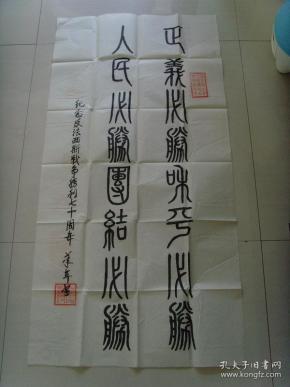 正義必勝和平必勝
人民必勝團結必勝
纪念反法西斯战争胜利七十周年
孔夫子旧书网
www.kongfz.com